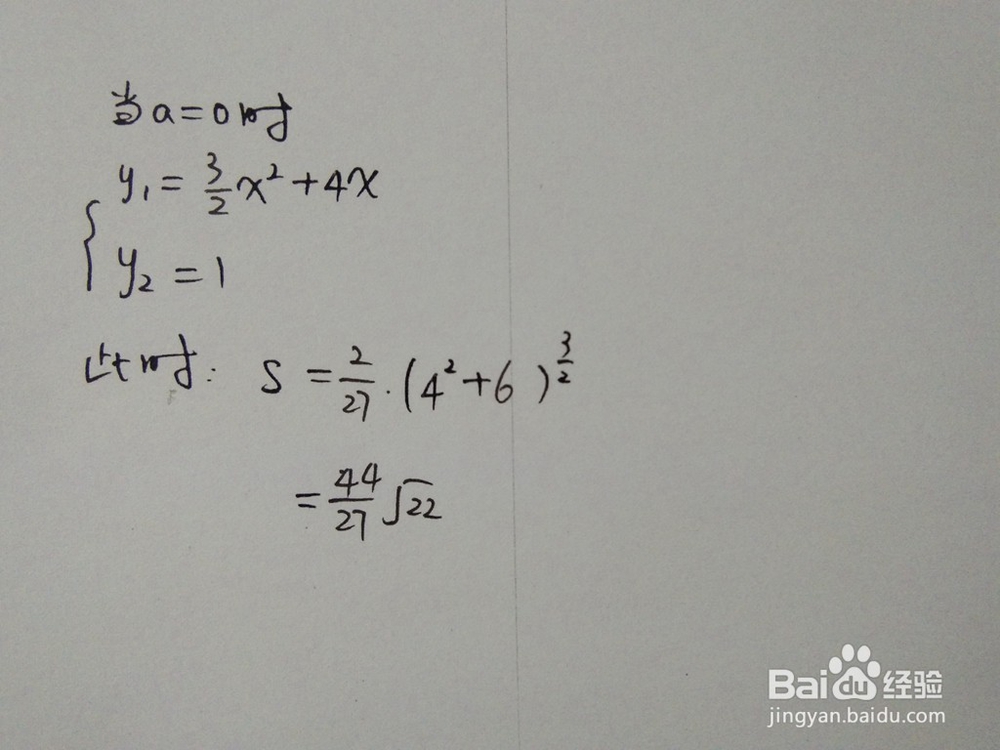 当a=0时
y₁=3/2x²+4x
y₂=1
此时: S=2/27·(4²+6)^(3/2)
=44/27√22
Baidu经验
jingyan.baidu.com